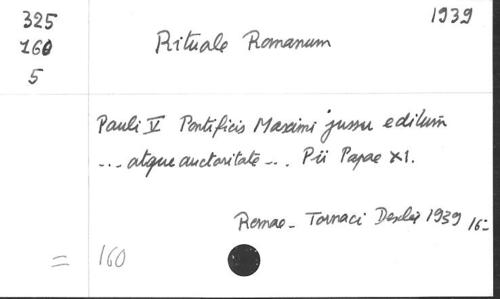 325
160
5
1939
Rituale Romanum
Pauli V Pontificis Maximi jussu editum
... atque auctoritate ... Pii Papae XI.
Romae - Tornaci Desclée 1939 16=
= 160